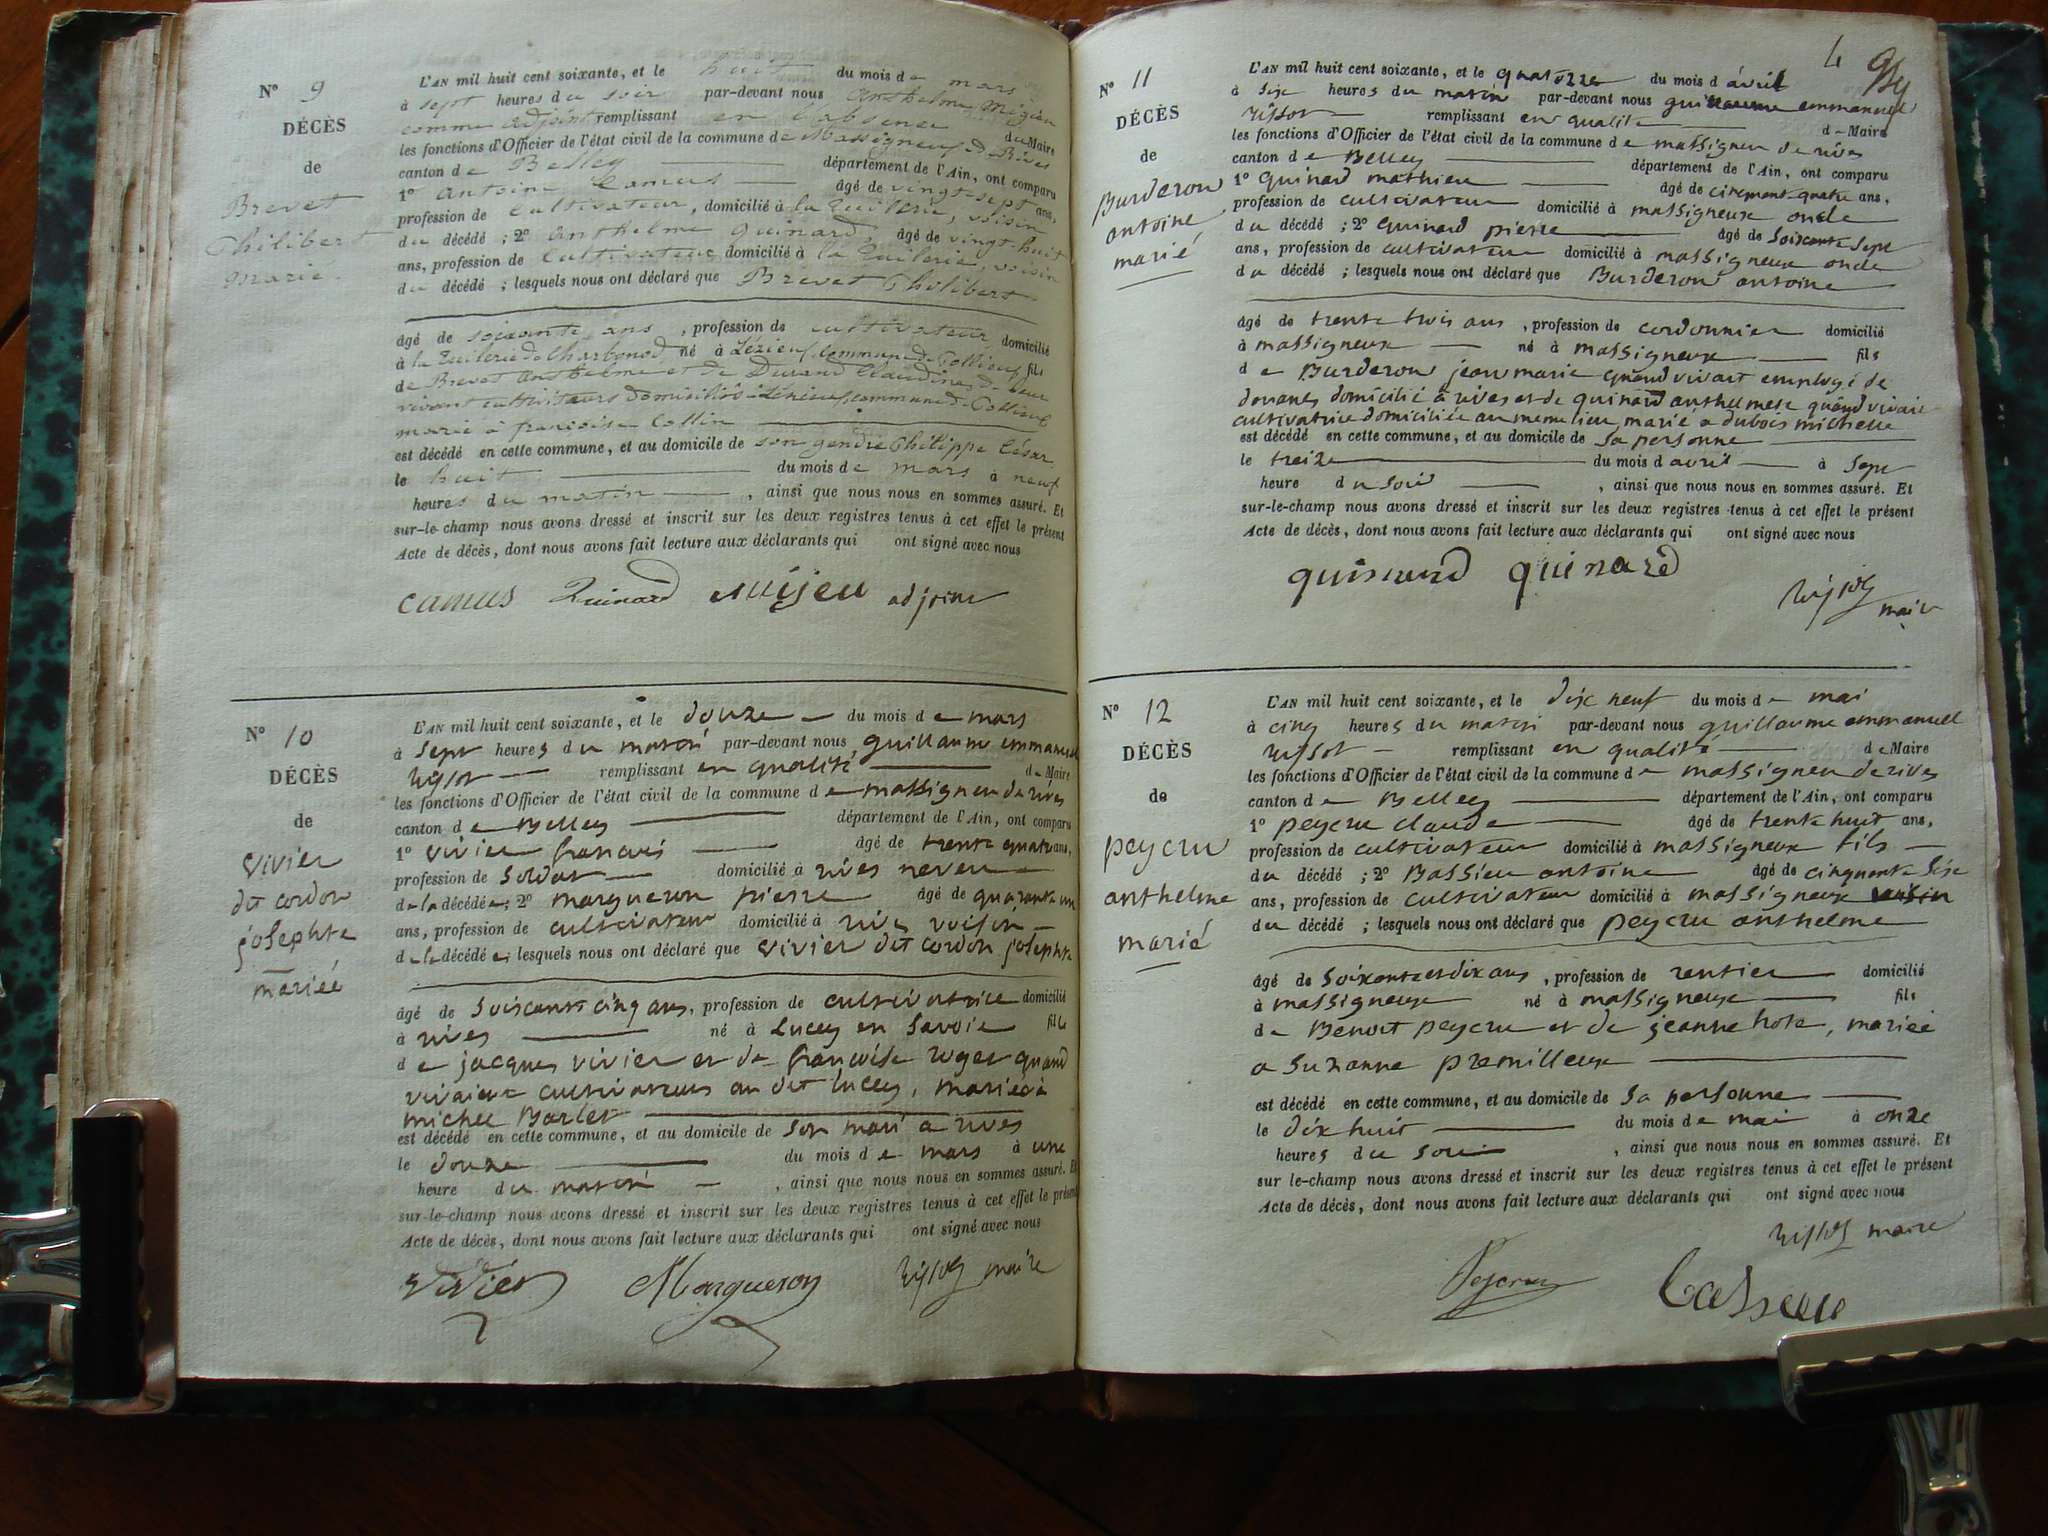 N° 9
DÉCÈS
de
Brevet
Philibert
marié.
L'AN mil huit cent soixante, et le huit du mois de mars
à sept heures du soir par-devant nous Anthelme Mégieu
comme adjoint remplissant en l'absence du Maire
les fonctions d'Officier de l'état civil de la commune de Massigneuf de Rives
canton de Belley département de l'Ain, ont comparu
1° Antoine Camus âgé de vingt-sept ans,
profession de Cultivateur, domicilié à la Tuilerie, voisin
du décédé ; 2° Anthelme Quinard, âgé de vingt-huit
ans, profession de Cultivateur domicilié à la Tuilerie, voisin
du décédé ; lesquels nous ont déclaré que Brevet Philibert
âgé de soixante ans, profession de cultivateur, domicilié
à la Tuilerie de Charbonod, né à Lézieuf, commune de Pollieuf fils
de Brevet Anthelme et de Durand Claudine, de leur
vivant cultivateurs domiciliés à Lézieuf, commune de Pollieuf
marié à françoise Collin
est décédé en cette commune, et au domicile de son gendre Philippe César
le huit du mois de mars à neuf
heures du matin, ainsi que nous nous en sommes assuré. Et
sur-le-champ nous avons dressé et inscrit sur les deux registres tenus à cet effet le présent
Acte de décès, dont nous avons fait lecture aux déclarants qui ont signé avec nous
camus Quinard Mijeu adjoint
N° 10
DÉCÈS
de
vivier
dit cordon
josephte
mariée
L'AN mil huit cent soixante, et le douze du mois de mars
à sept heures du matin par-devant nous guillaume emmanuel
remplissant en qualité de Maire
les fonctions d'Officier de l'état civil de la commune de massigneu de rives
canton de Belley département de l'Ain, ont comparu
1° vivier françois âgé de trente quatre ans,
profession de soldat domicilié à rives neveu
de la décédée ; 2° margueron pierre âgé de quarante un
ans, profession de cultivateur domicilié à rives voisin
de la décédée ; lesquels nous ont déclaré que vivier dit cordon josephte
âgé de soixante cinq ans, profession de cultivatrice domicilié
à rives né à Lucey en Savoie fille
de jacques vivier et de françoise roger quand
vivaient cultivateurs au dit lucey, mariée à
michel Barlet
est décédé en cette commune, et au domicile de son mari a rives
le douze du mois de mars à une
heure du matin, ainsi que nous nous en sommes assuré. Et
sur-le-champ nous avons dressé et inscrit sur les deux registres tenus à cet effet le présent
Acte de décès, dont nous avons fait lecture aux déclarants qui ont signé avec nous
vivier Margueron maire
4
N° 11
DÉCÈS
de
Burderon
antoine
marié
L'AN mil huit cent soixante, et le quatorze du mois d avril
à six heures du matin par-devant nous guillaume emmanuel
remplissant en qualité de Maire
les fonctions d'Officier de l'état civil de la commune de massigneu de rives
canton de Belley département de l'Ain, ont comparu
1° Quinard mathieu âgé de cinquante-quatre ans,
profession de cultivateur domicilié à massigneux oncle
du décédé ; 2° Quinard pierre âgé de soixante sept
ans, profession de cultivateur domicilié à massigneux oncle
du décédé ; lesquels nous ont déclaré que Burderon antoine
âgé de trente trois ans, profession de cordonnier domicilié
à massigneux né à massigneux fils
de Burderon jean marie quand vivait employé de
douanes domicilié à rives et de quinard anthelmete quand vivait
cultivatrice domiciliée au meme lieu, marié a dubois michelle
est décédé en cette commune, et au domicile de sa personne
le treize du mois d avril à sept
heure du soir, ainsi que nous nous en sommes assuré. Et
sur-le-champ nous avons dressé et inscrit sur les deux registres tenus à cet effet le présent
Acte de décès, dont nous avons fait lecture aux déclarants qui ont signé avec nous
quinard quinard
maire
N° 12
DÉCÈS
de
peycru
anthelme
marié
L'AN mil huit cent soixante, et le dix neuf du mois de mai
à cinq heures du matin par-devant nous guillaume emmanuel
remplissant en qualité de Maire
les fonctions d'Officier de l'état civil de la commune de massigneu de rives
canton de Belley département de l'Ain, ont comparu
1° peycru claude âgé de trente huit ans,
profession de cultivateur domicilié à massigneux fils
du décédé ; 2° Bassieu antoine âgé de cinquante six
ans, profession de cultivateur domicilié à massigneux voisin
du décédé ; lesquels nous ont déclaré que peycru anthelme
âgé de soixante et dix ans, profession de rentier domicilié
à massigneux né à massigneux fils
de Benoit peycru et de jeanne hote, mariée
a suzanne premilleux
est décédé en cette commune, et au domicile de sa personne
le dix huit du mois de mai à onze
heures du soir, ainsi que nous nous en sommes assuré. Et
sur le-champ nous avons dressé et inscrit sur les deux registres tenus à cet effet le présent
Acte de décès, dont nous avons fait lecture aux déclarants qui ont signé avec nous
maire
Peycru Bassieu